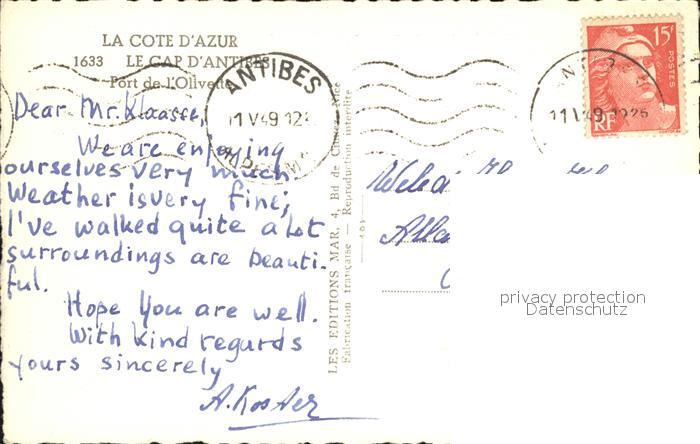 LA COTE D'AZUR
1633 LE CAP D'ANTIBES
Port de l'Olivette
ANTIBES
15F
POSTES
RF
Dear Mr. Klaasse,
We are enjoying
ourselves very much.
Weather is very fine;
I've walked quite a lot
surroundings are beauti-
ful.
Hope you are well.
With kind regards
yours sincerely
A. Koster
LES EDITIONS MAR, 4, Bd de
Fabrication française — Reproduction interdite
privacy protection
Datenschutz